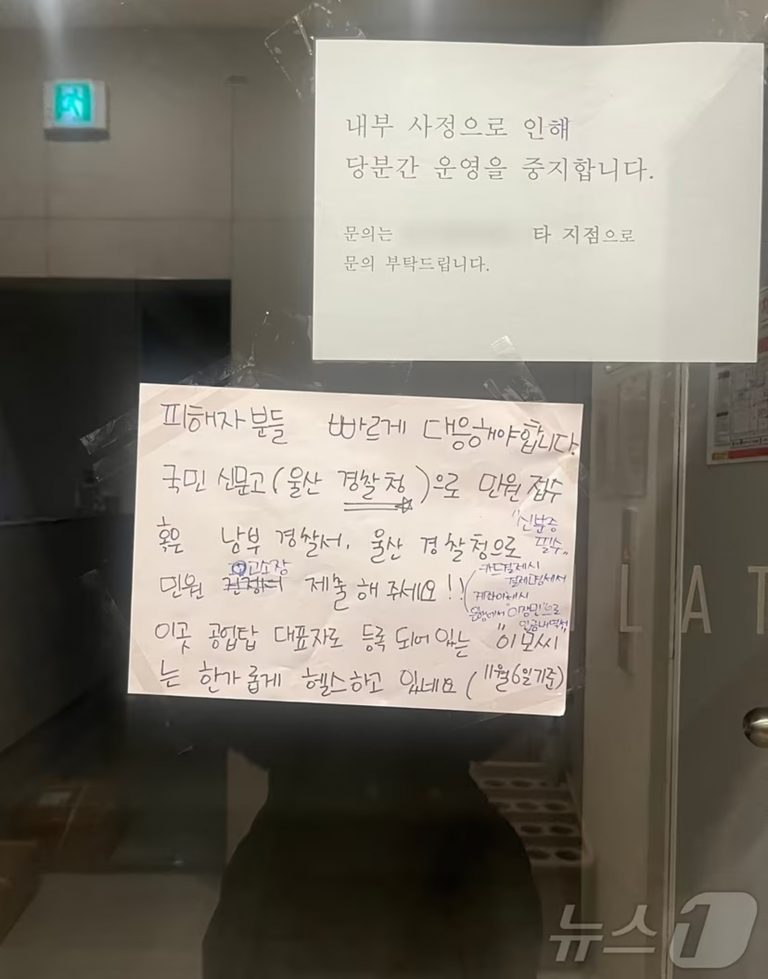 내부 사정으로 인해
당분간 운영을 중지합니다.
문의는 타 지점으로
문의 부탁드립니다.
피해자분들 빠르게 대응해야합니다
국민 신문고(울산 경찰청)으로 민원 접수
"신분증
필수"
혹은 남부 경찰서, 울산 경찰청으로
고소장
민원 제출해 주세요!!
카드결제시
계좌이체시
이곳 공업탑 대표자로 등록 되어 있는 "이모씨"
는 한가롭게 헬스하고 있네요 (11월6일기준)
LAT
뉴스1